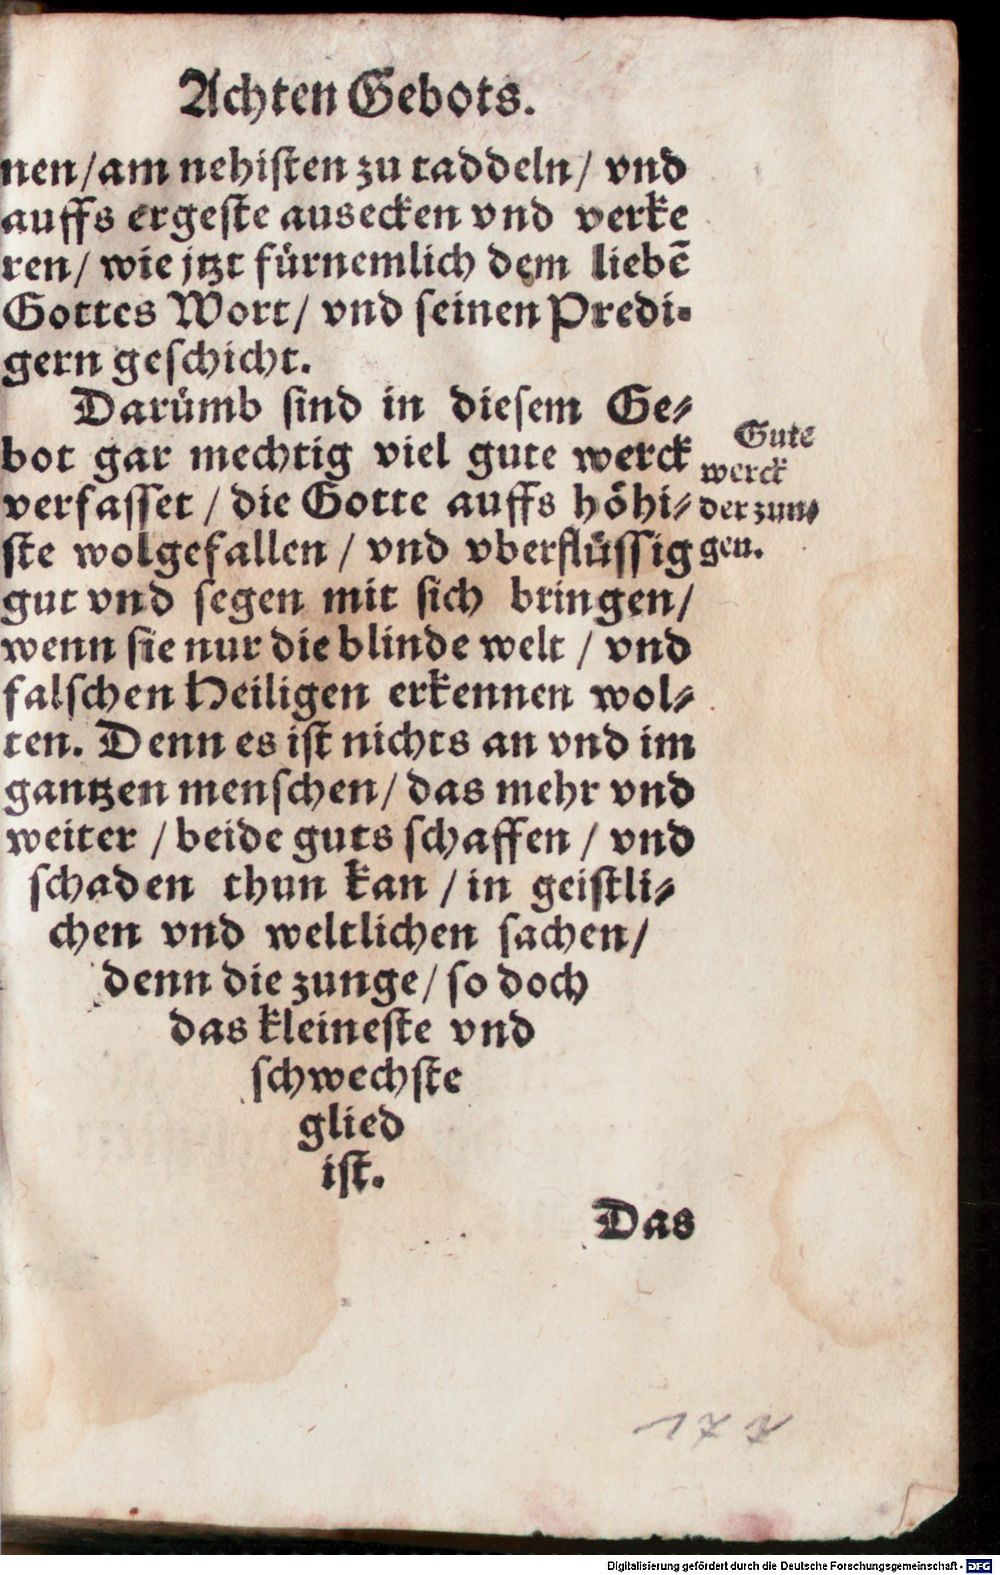 Achten Gebots.
nen/am nehisten zu taddeln/ vnd
auffs ergeste ausecken vnd verke
ren/ wie jtzt fürnemlich dem liebē
Gottes Wort/ vnd seinen Predi-
gern geschicht.
Darümb sind in diesem Ge-
bot gar mechtig viel gute werck
verfasset / die Gotte auffs höhi-
ste wolgefallen / vnd vberflüssig
gut vnd segen mit sich bringen/
wenn sie nur die blinde welt / vnd
falschen Heiligen erkennen wol-
ten. Denn es ist nichts an vnd im
gantzen menschen/ das mehr vnd
weiter / beide guts schaffen / vnd
schaden thun kan / in geistli-
chen vnd weltlichen sachen/
denn die zunge/ so doch
das kleineste vnd
schwechste
glied
ist.
Gute
werck
der zun-
gen.
Das
Digitalisierung gefördert durch die Deutsche Forschungsgemeinschaft - DFG